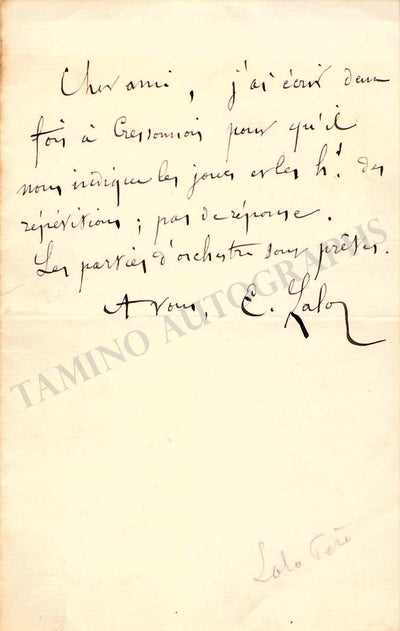 Cher ami, j'ai écrit deux
fois à Cressonnois pour qu'il
nous indique les jours et les h.ʳ des
répétitions ; pas de réponse.
Les parties d'orchestre sont prêtes.
A vous, E. Lalo
TAMINO AUTOGRAPHS
Lalo Père